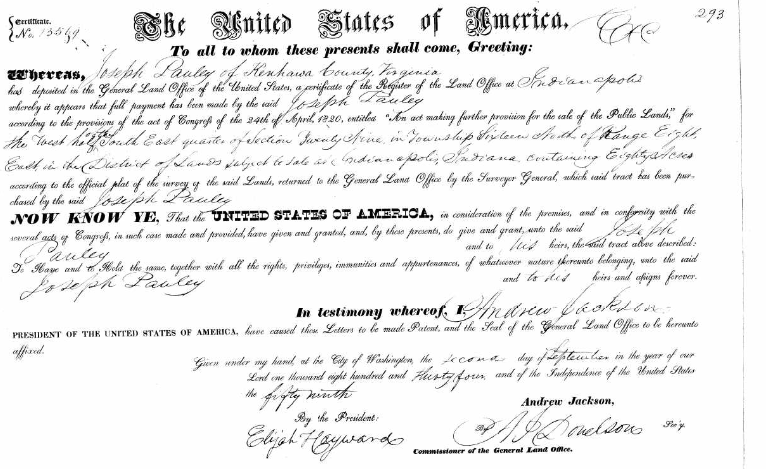 Certificate.
No. 15519
The United States of America.
293
To all to whom these presents shall come, Greeting:
WHEREAS, Joseph Pauley of Kenhawa County, Virginia
has deposited in the General Land Office of the United States, a certificate of the Register of the Land Office at Indianapolis
whereby it appears that full payment has been made by the said Joseph Pauley
according to the provisions of the act of Congress of the 24th of April, 1820, entitled "An act making further provision for the sale of the Public Lands," for
the West half of the South East quarter of Section Twenty Nine, in Township Sixteen North of Range Eight
East, in the District of Lands subject to sale at Indianapolis, Indiana, containing Eighty Acres
according to the official plat of the survey of the said Lands, returned to the General Land Office by the Surveyor General, which said tract has been pur-
chased by the said Joseph Pauley
NOW KNOW YE, That the UNITED STATES OF AMERICA, in consideration of the premises, and in conformity with the
several acts of Congress, in such case made and provided, have given and granted, and, by these presents, do give and grant, unto the said Joseph
Pauley and to his heirs, the said tract above described:
To Have and to Hold the same, together with all the rights, privileges, immunities and appurtenances, of whatsoever nature thereunto belonging, unto the said
Joseph Pauley and to his heirs and assigns forever.
In testimony whereof, I, Andrew Jackson
PRESIDENT OF THE UNITED STATES OF AMERICA, have caused these Letters to be made Patent, and the Seal of the General Land Office to be hereunto
affixed.
Given under my hand, at the City of Washington, the second day of September in the year of our
Lord one thousand eight hundred and thirty four and of the Independence of the United States
the fifty ninth
Andrew Jackson,
By the President:
By A J Donelson Sec'y.
Elijah Hayward
Commissioner of the General Land Office.